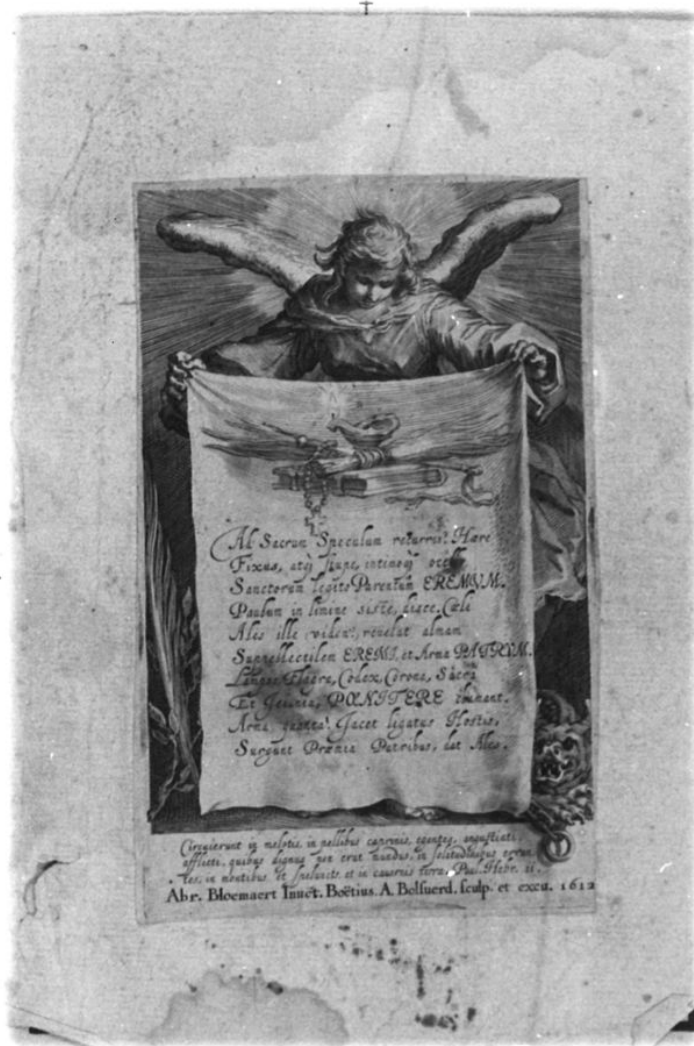 Ad Sacrum Speculum recurris? Hære
Fixus, atq; stupe, intimoq; ocello
Sanctorum legito Parentum EREMUM.
Paulum in limine siste, disce, Cœli
Ales ille viden?, revelat almam
Suppellectilem EREMI, et Arma PATRVM.
Flagra, Codex, Corona, Sacra
Et Ieiunia, POENITERE
Arma quanta! Jacet ligatus Hostis,
Surgunt Præmia Patribus, dat Ales.
Circuierunt in melotis, in pellibus caprinis, egentes, angustiati,
afflicti, quibus dignus non erat mundus, in solitudinibus erran
tes, in montibus et speluncis, et in cavernis terræ. Paul. Hebr. 11.
Abr. Bloemaert Inuẽt. Boëtius. A. Bolsuerd. sculp. et excu. 1612